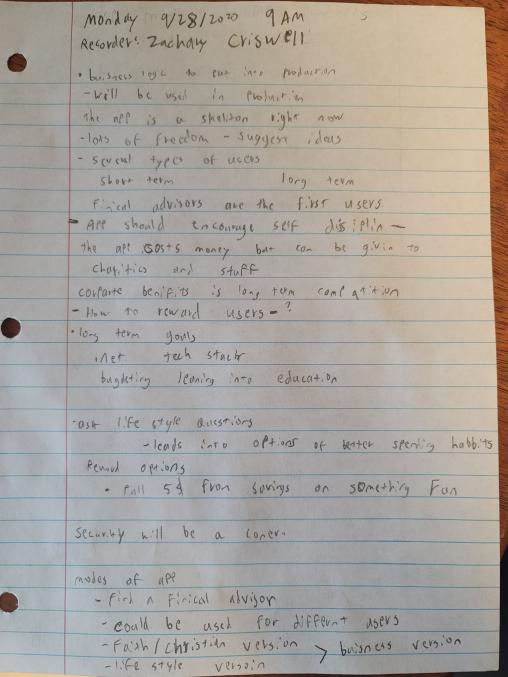 Monday 9/28/2020 9 AM
Recorder: Zachary Criswell
• buisness logic to put into production
- will be used in production
the app is a skeliton right now
- lots of freedom - suggest ideas
- several types of users
short term long term
Finical advisors are the first users
- App should encourage self disiplin -
the app costs money but can be givin to
charitics and stuff
corparte benifits is long term compatition
- How to reward users - ?
• long term goals
.net tech stack
bugdeting leaning into education
- ask life style questions
- leads into options of better spending habbits
Reward options
• Pull 5$ from savings on something Fun
Security will be a conern
modes of app
- Find a finical advisor
- could be used for differnt users
- Faith/christian version > buisness version
- life style versoin